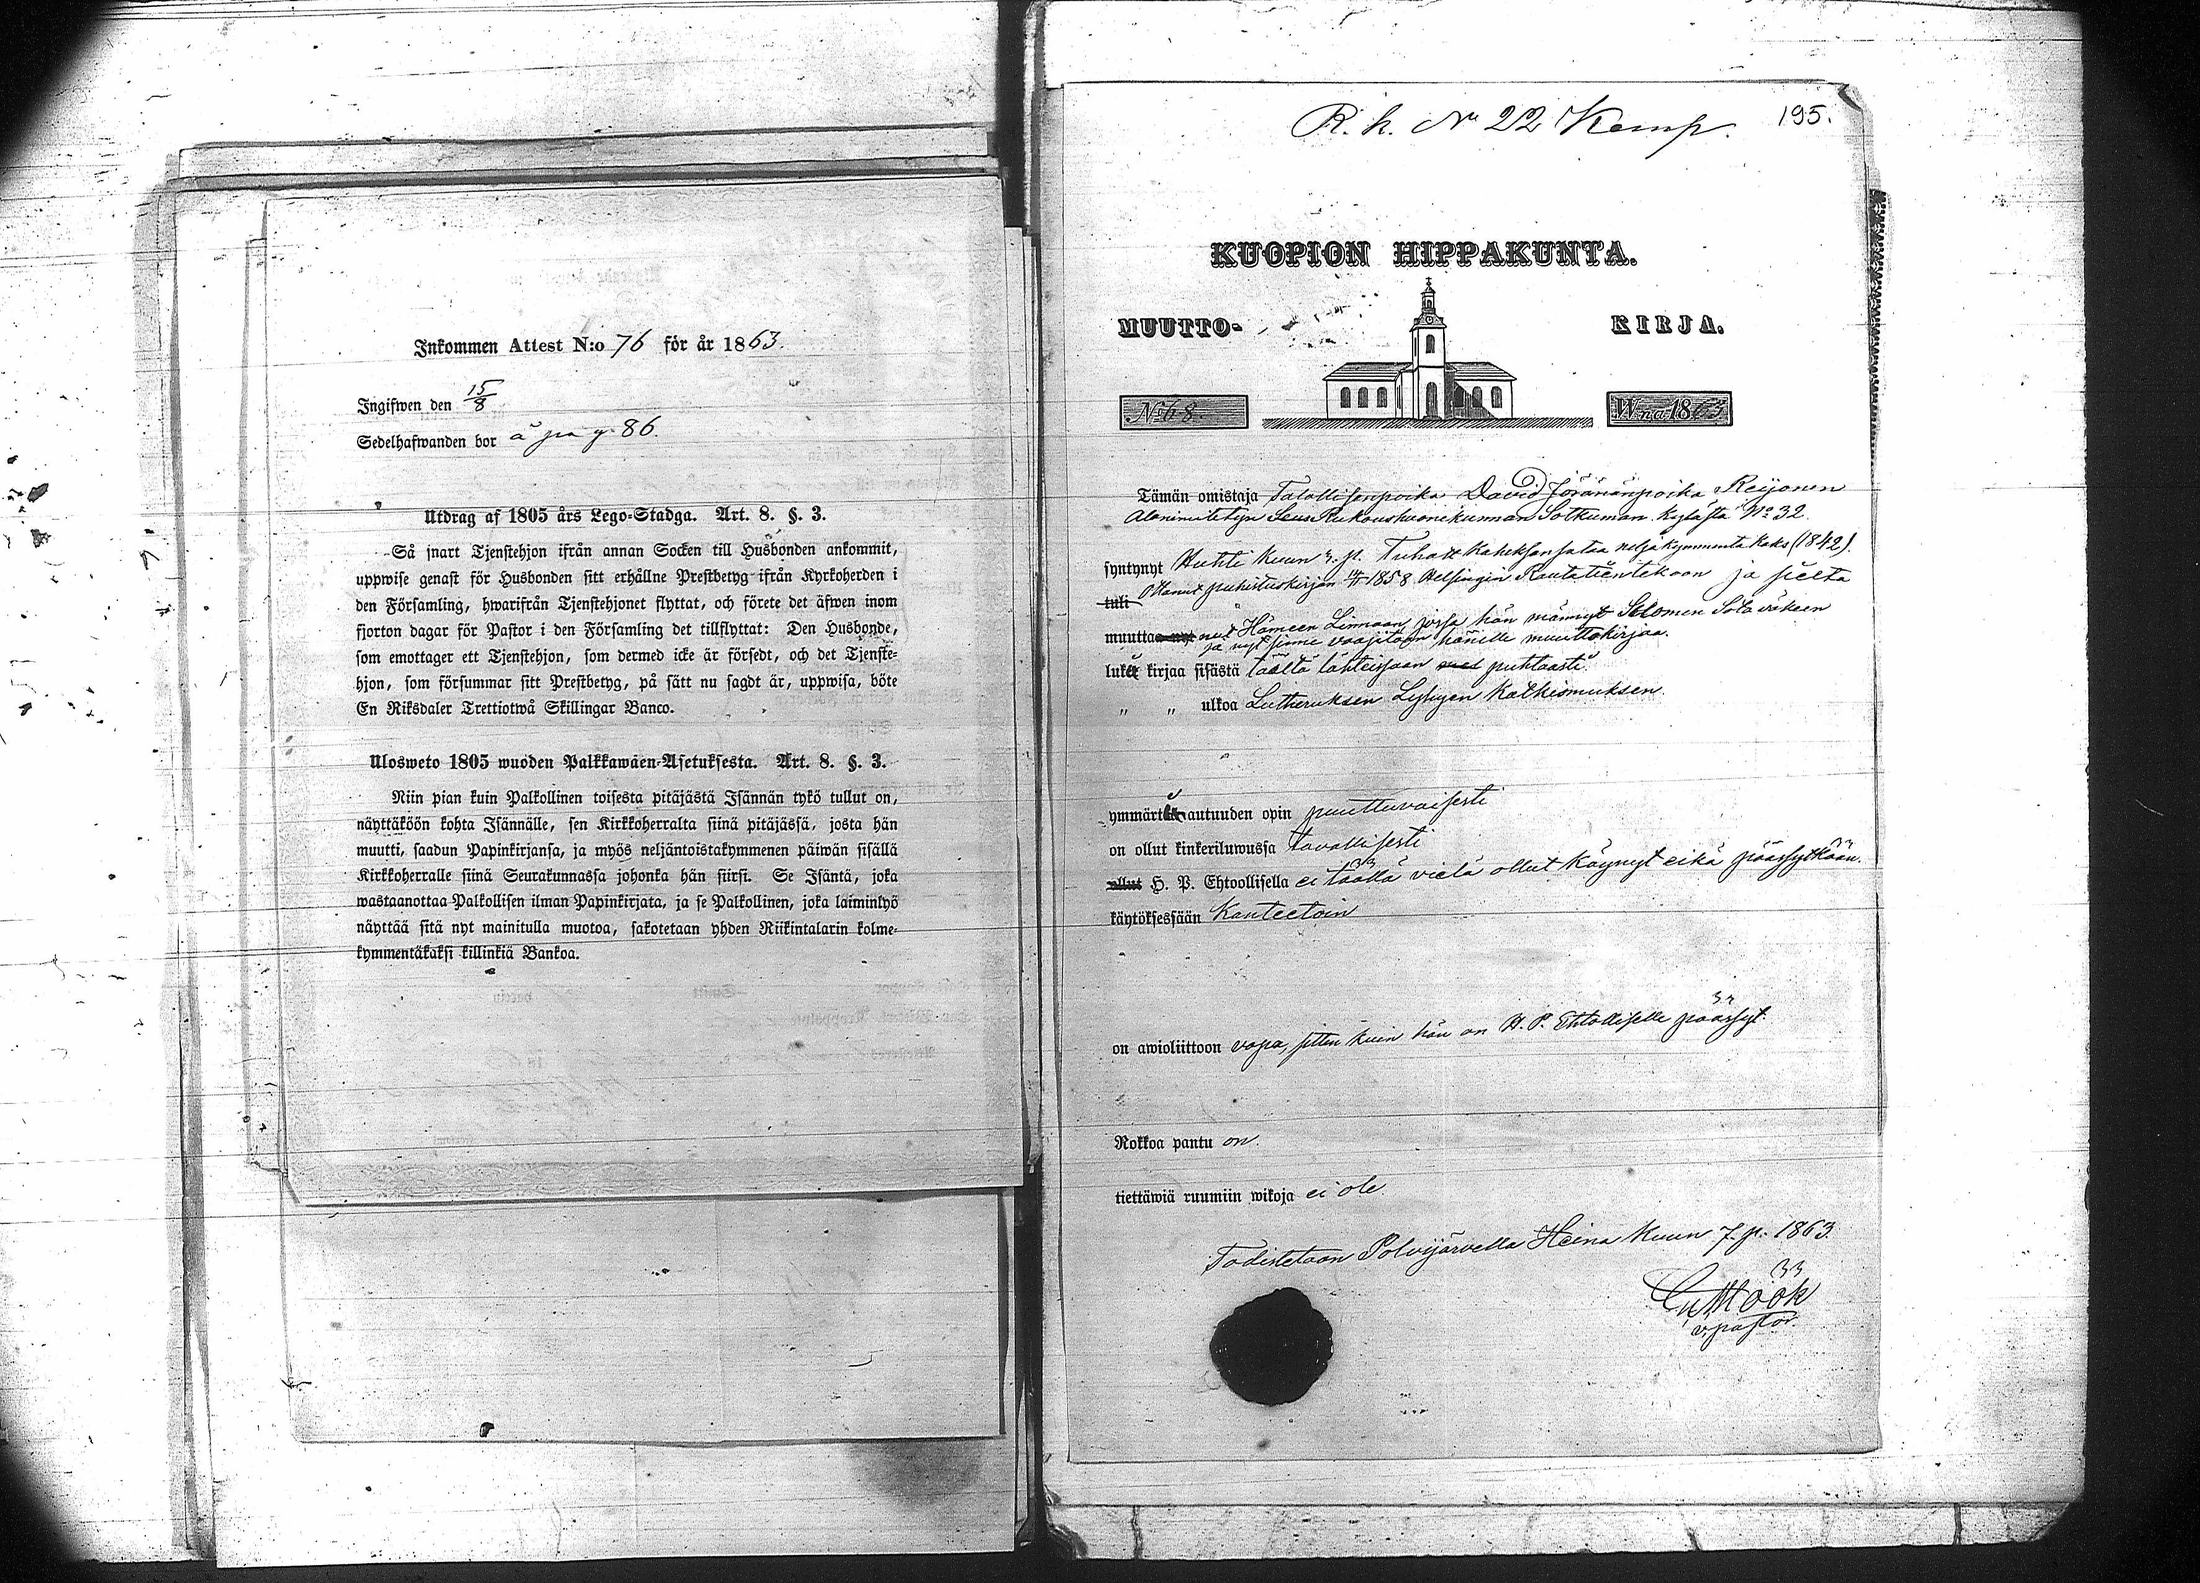 Inkommen Attest N:o 76 för år 1863.
Ingifwen den 15/8
Sedelhafwanden bor å pag 86.
Utdrag af 1805 års Lego-Stadga. Art. 8. §. 3.
Så snart Tjenstehjon ifrån annan Socken till Husbonden ankommit,
uppwise genast för Husbonden sitt erhållne Prestbetyg ifrån Kyrkoherden i
den Församling, hwarifrån Tjenstehjonet flyttat, och förete det äfwen inom
fjorton dagar för Pastor i den Församling det tillflyttat: Den Husbonde,
som emottager ett Tjenstehjon, som dermed icke är försedt, och det Tjenste-
hjon, som försummar sitt Prestbetyg, på sätt nu sagdt är, uppwisa, böte
En Riksdaler Trettiotwå Skillingar Banco.
Ulosweto 1805 wuoden Palkkawäen-Asetuksesta. Art. 8. §. 3.
Niin pian kuin Palkollinen toisesta pitäjästä Isännän tykö tullut on,
näyttäköön kohta Isännälle, sen Kirkkoherralta siinä pitäjässä, josta hän
muutti, saadun Papinkirjansa, ja myös neljäntoistakymmenen päiwän sisällä
Kirkkoherralle siinä Seurakunnassa johonka hän siirsi. Se Isäntä, joka
wastaanottaa Palkollisen ilman Papinkirjata, ja se Palkollinen, joka laiminlyö
näyttää sitä nyt mainitulla muotoa, sakotetaan yhden Riikintalarin kolme-
kymmentäkaksi killinkiä Bankoa.
R. k. No 22 Kemp. 195.
KUOPION HIPPAKUNTA.
MUUTTO- KIRJA.
No 68. Wna 1863
Tämän omistaja Talollisenpoika David Jöranänpoika Reijonen
Alanimitetyn Rukoushuonekunnan Sotkuman kylästä No 32
syntynyt Huhti kuun 3. p. Tuhatt Kaheksansataa neljäkymmentä kaks (1842).
tuli Ottanut puhistuskirjan 1858 Helsingin Rautatientekoon ja sieltä
muuttaa nyt Hämeen Linnaan jossa hän männyt Suomen Sota väkeen
ja nyt sinne vaajitaan hänelle muuttokirjaa.
lukee kirjaa sisästä täältä lähteissään puhtaasti
" " ulkoa Lutheruksen Lyhyen Katkismuksen.
ymmärtää autuuden opin puuttuvaisesti
on ollut kinkeriluwussa tavallisesti
ollut H. P. Ehtoollisella ei täällä vielä ollut käynyt eikä päässytkään.
käytöksessään Kanteetoin
on awioliittoon vapa, sitten kuin hän on H. P. Ehtolliselle päässyt.
Rokkoa pantu on.
tiettäwiä ruumiin wikoja ei ole.
Todistetaan Polvijärvella Heina kuun 7. p. 1863.
Höök
v. pastor.